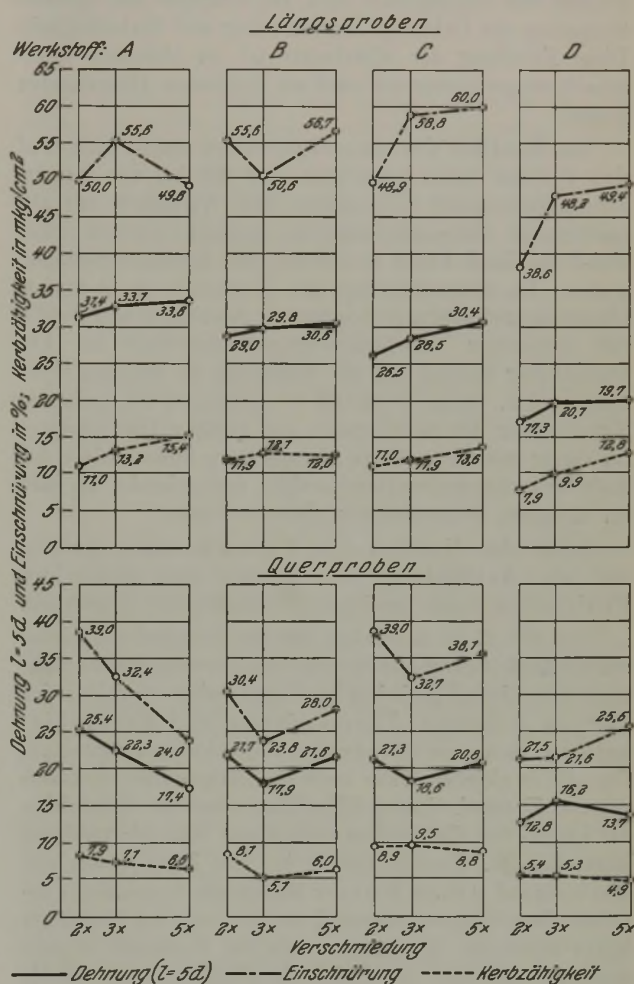 Längsproben
Werkstoff: A B C D
Dehnung l=5d und Einschnürung in %; Kerbzähigkeit in mkg/cm²
65
60
55
50
45
40
35
30
25
20
15
10
5
0
50,0 55,6 49,8
31,4 33,1 33,8
11,0 13,2 15,4
55,6 50,6 56,7
29,0 29,8 30,6
11,9 12,7 12,0
48,9 58,8 60,0
26,5 28,5 30,4
11,0 11,9 13,6
38,6 48,2 49,4
17,3 20,1 19,7
7,9 9,9 12,8
Querproben
45
40
35
30
25
20
15
10
5
0
39,0 32,4 24,0
25,4 22,3 17,4
7,9 7,1
30,4 23,8 28,0
21,7 17,9 21,6
8,7 5,7 6,0
39,0 32,7 38,1
21,3 18,6 20,8
8,9 9,5 8,8
21,5 21,6 25,6
12,8 16,2 13,7
5,4 5,3 4,9
2× 3× 5× 2× 3× 5× 2× 3× 5× 2× 3× 5×
Verschmiedung
Dehnung (l=5d) Einschnürung Kerbzähigkeit